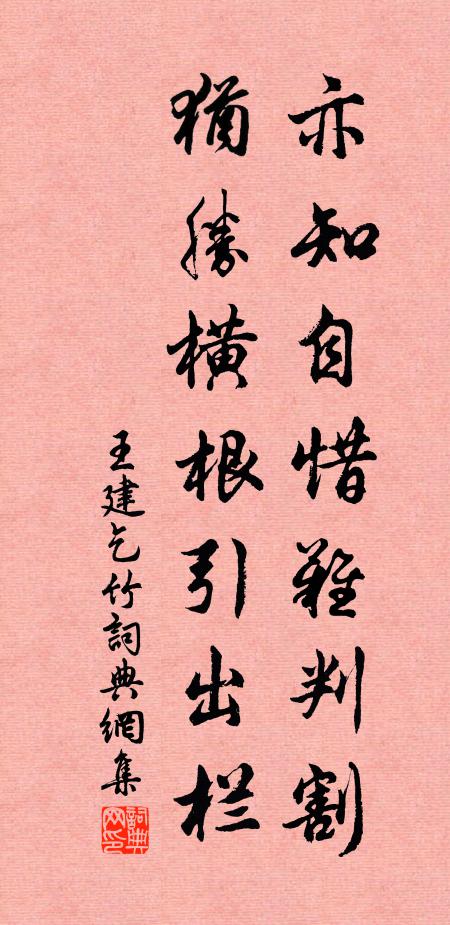 亦知自惜难判割
犹胜横根引出栏
王建乞竹詞典網集
詞典网印